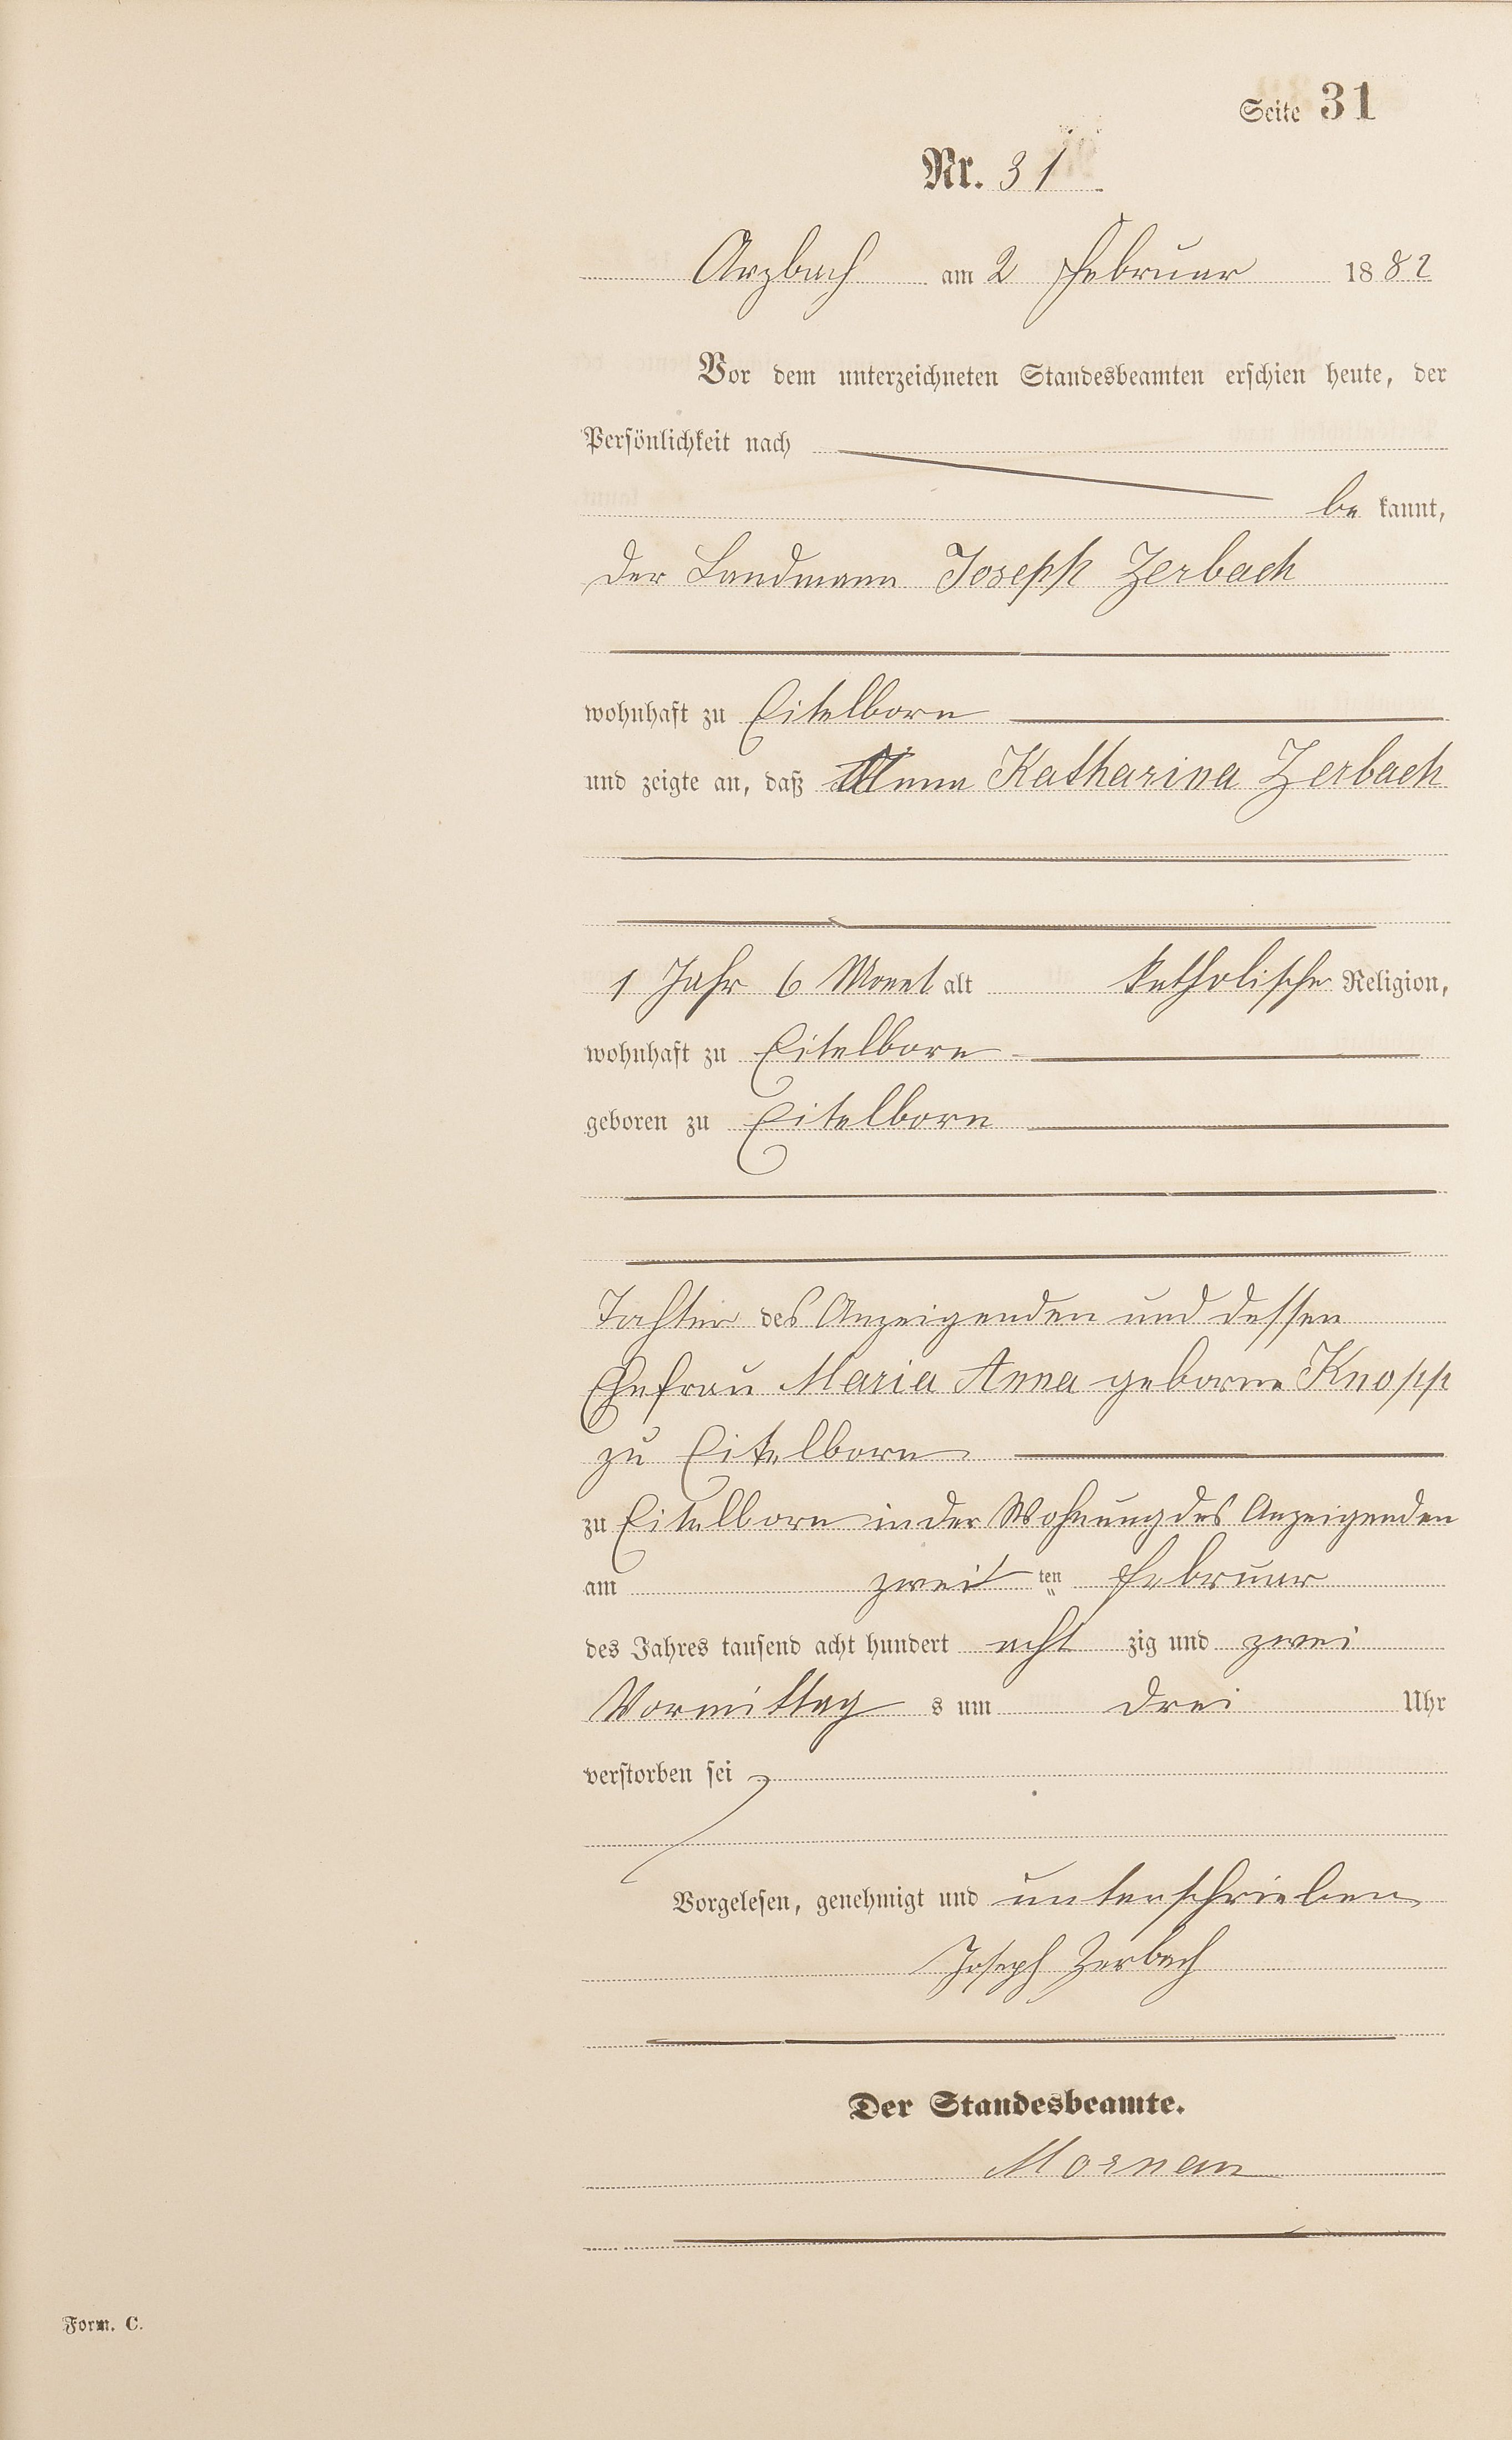 Seite 31
Nr. 31
Arzbach am 2 Februar 1882
Vor dem unterzeichneten Standesbeamten erschien heute, der
Persönlichkeit nach
be kannt,
der Landmann Joseph Zerbach
wohnhaft zu Eitelborn
und zeigte an, daß Anna Katharina Zerbach
1 Jahr 6 Monat alt katholischer Religion,
wohnhaft zu Eitelborn
geboren zu Eitelborn
Tochter des Anzeigenden und dessen
Ehefrau Maria Anna geborne Knopp
zu Eitelborn
zu Eitelborn in der Wohnung des Anzeigenden
am zweiten Februar
des Jahres tausend acht hundert acht zig und zwei
Vormittag s um drei Uhr
verstorben sei
Vorgelesen, genehmigt und unterschrieben
Joseph Zerbach
Der Standesbeamte.
Form. C.